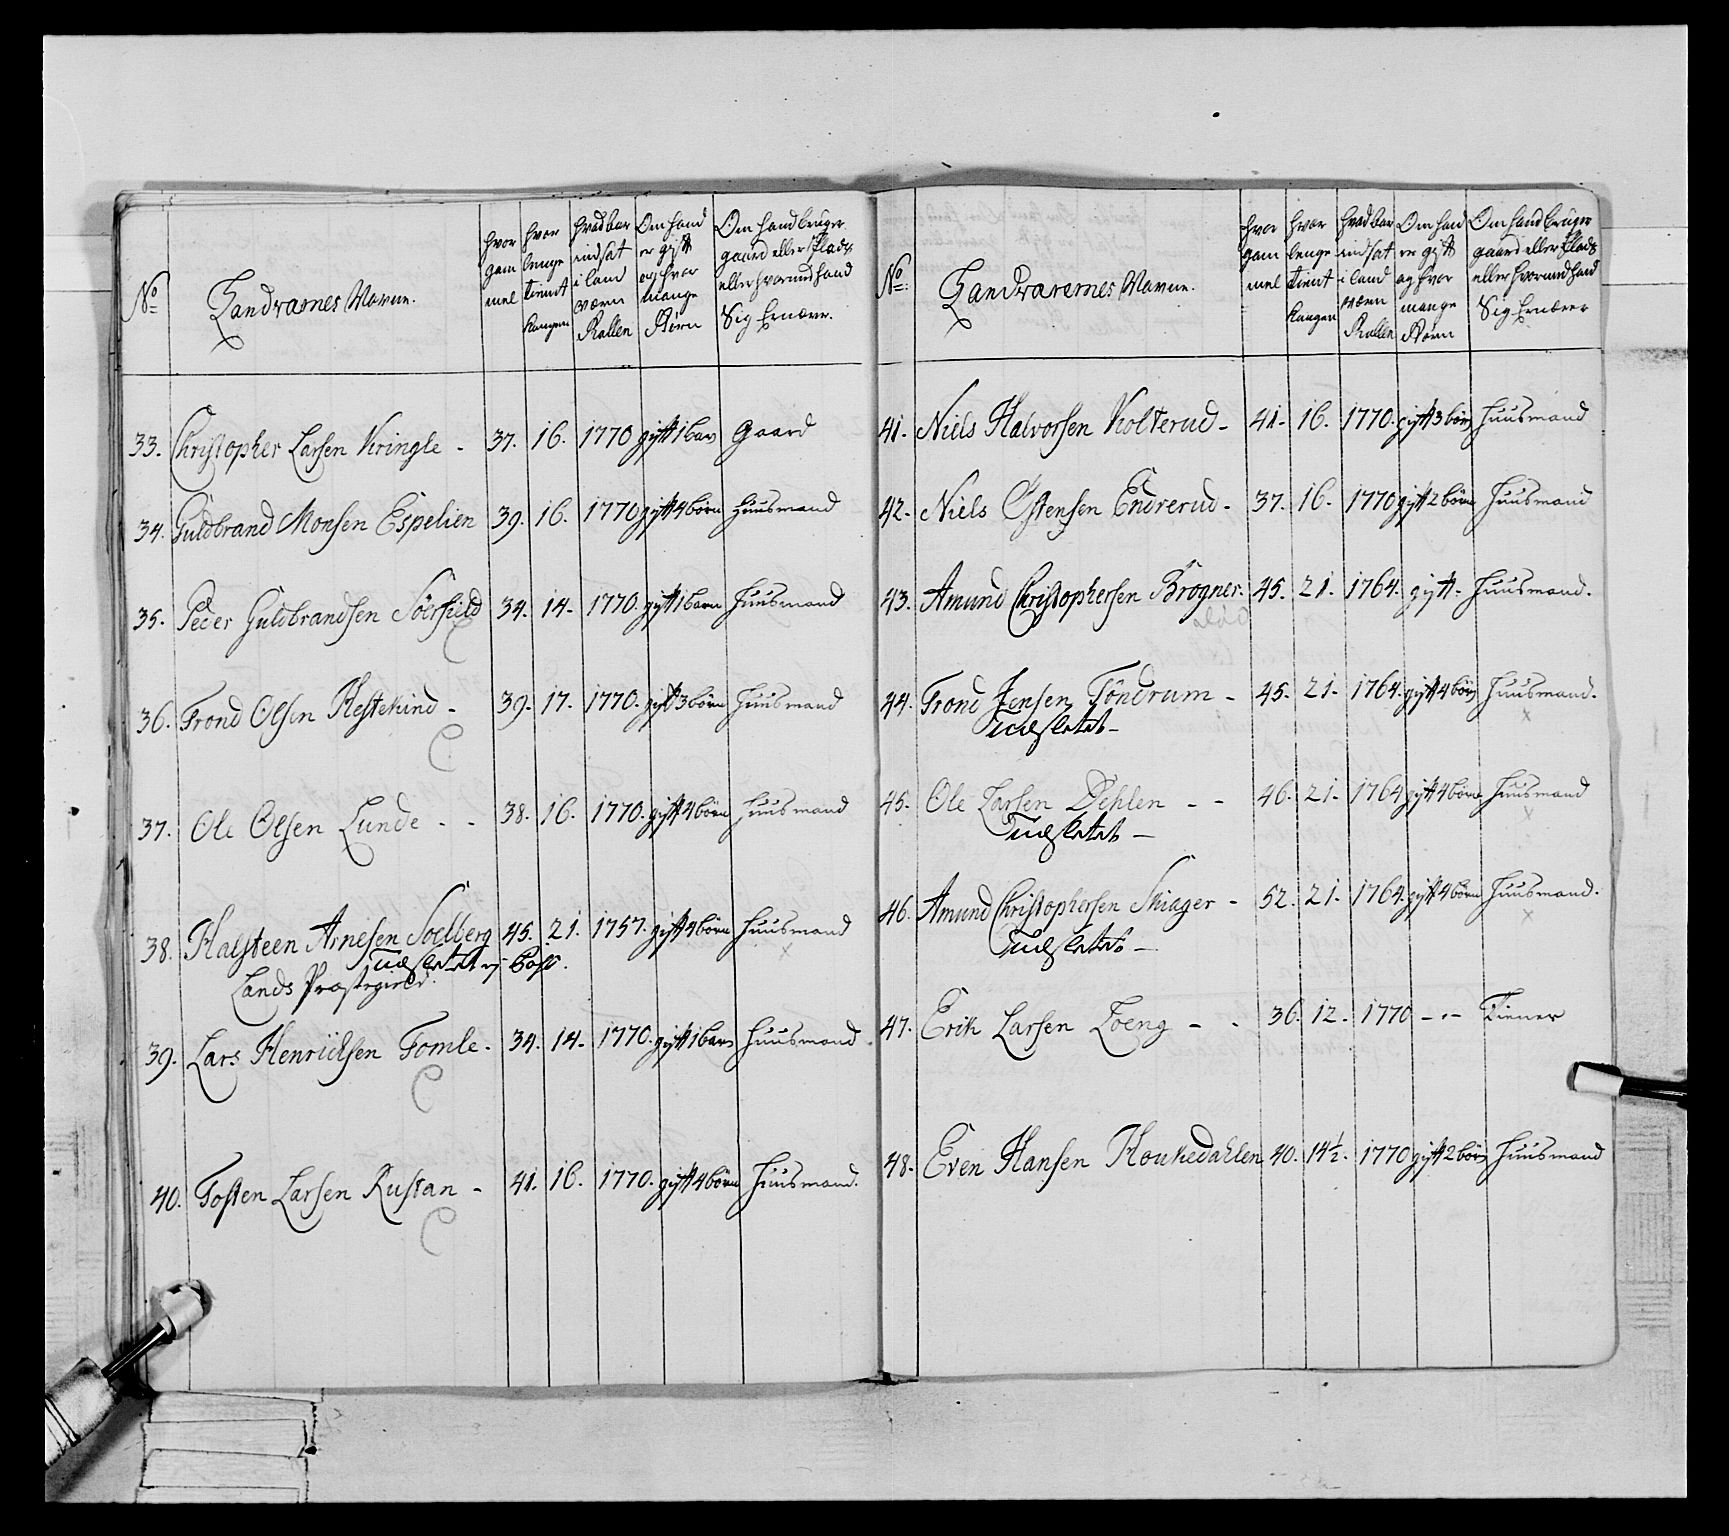 No
Landværnes Navne.
hvor gam mel
hvor lenge tient kongen
hvad har indsat i land værn Rullen
Om hand er gift og hvor mange Börn
Om hand bruger gaard eller Plads eller hvormed hand Sig Ernærer.
33. Christopher Larsen Kringle - 37. 16. 1770 gift 1 barn Gaard
34. Guldbrand Monsen Espelien 39. 16. 1770 gift 4 börn Huusmand
35. Peder Guldbrandsen Söerfield 34. 14. 1770. gift 1 barn Huusmand
36. Trond Olsen Restekind - 39. 17. 1770. gift 3 börn Huusmand
37. Ole Olsen Lunde - - 38. 16. 1770. gift 4 börn Huusmand
38. Halsteen Arnesen Soelberg 45. 21. 1757. gift 4 börn Huusmand
x
Udslettet
Lands Præstegield.
39. Lars Henrichsen Tomle. 34. 14. 1770. gift 1 barn Huusmand.
40. Tosten Larsen Rustan - 41. 16. 1770. gift 4 börn Huusmand.
No
Landværernes Navne.
hvor gam mel
hvor lenge tient kongen
hvad har indsat i land værn Rullen
Om hand er gift og hvor mange Börn
Om hand bruger gaard eller Plads eller hvormed hand Sig Ernærer
41. Niels Halvorsen Kolterud - 41. 16. 1770. gift 3 börn Huusmand
42. Niels Östensen Endrerud - 37. 16. 1770 gift 2 börn Huusmand
43. Amund Christophersen Brogner. 45. 21. 1764. gift. Huusmand.
44. Trond Jensen Töndrum - 45. 21. 1764. gift 4 börn Huusmand.
Udslettet - x
45. Ole Larsen Dehlen - - 46. 21. 1764 gift 4 börn Huusmand
Udslettet - x
46. Amund Christophersen Skiager - 52. 21. 1764. gift 4 börn Huusmand.
Udslettet - x
47. Erik Larsen Loeng - - 36. 12. 1770 - . - Tiener
48. Even Hansen Houkedahlen 40. 14½. 1770 gift 2 börn Huusmand